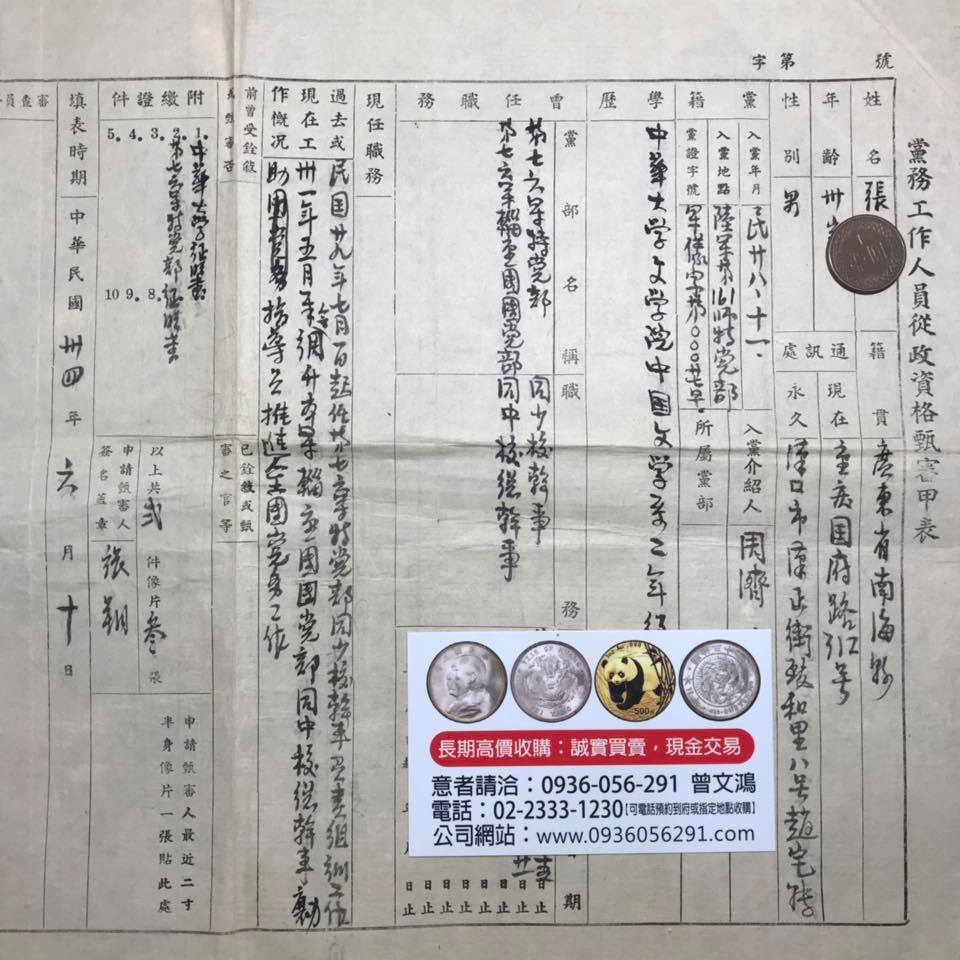 字第 號
黨務工作人員從政資格甄審甲表
姓名 張
籍貫 廣東省南海縣
年齡 卅
性別 男
通訊處
現在 重庆国府路 号
永久 漢口市漢正街致和里八号趙宅轉
黨籍
入黨年月 民廿八、十一、
入黨地點 陸軍第161師特党部
黨證字號 軍 字第00027号
入黨介紹人 周濟
所屬黨部
學歷
中華大学文学院中国文学系二年
曾任職務
黨部名稱
職務
期
第七六軍特党部 同少校幹事
第七六軍輜重團團党部 同中校總幹事
日止 日止 日止 日止 日止 日止 日止 日止
現任職務
過去或現在工作概況
民国廿九年七月 日起任第七六軍特党部同少校幹事 組训工作
卅一年五月 調升本軍輜重團團党部同中校總幹事
推進全團党务工作
前曾受銓敘或甄審否
已銓敘或甄審之官等
附繳證件
1. 中華大学征明書
2. 第七六軍特党部征明書
3.
4.
5.
8.
9.
10
以上共 弍 件像片 叁 張
申請甄審人簽名蓋章 張
申請甄審人最近二寸半身像片一張貼此處
填表時期 中華民國 卅四 年 六 月 十 日
審查員
500元
長期高價收購：誠實買賣，現金交易
意者請洽：0936-056-291 曾文鴻
電話：02-2333-1230【可電話預約到府或指定地點收購】
公司網站：www.0936056291.com